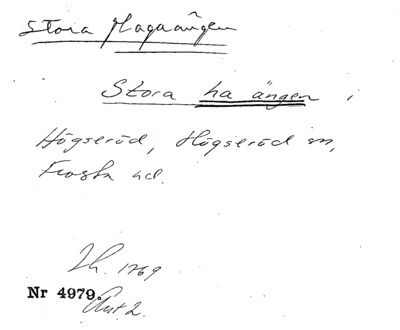 Stora Hagaängen
Stora ha ängen i
Högseröd, Högseröd sn,
Frosta hd.
Lh. 1769
Nr 4979. Akt 2.